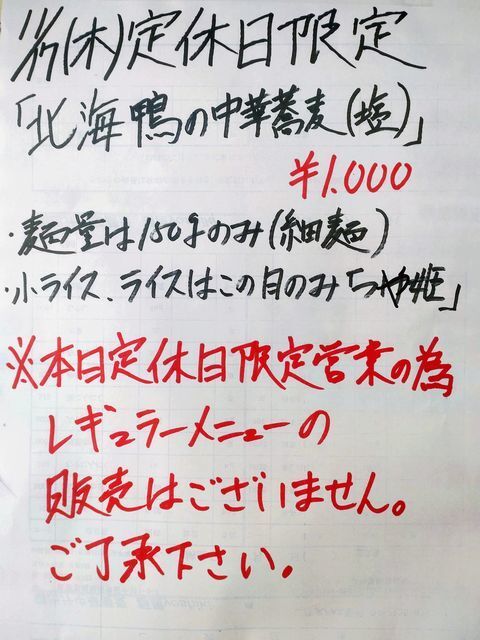 11/17(木)定休日限定
「北海鴨の中華蕎麦(塩)」
¥1.000
・麺量は150gのみ(細麺)
・小ライス、ライスはこの日のみ「つや姫」
※本日定休日限定営業の為
レギュラーメニューの
販売はございません。
ご了承下さい。